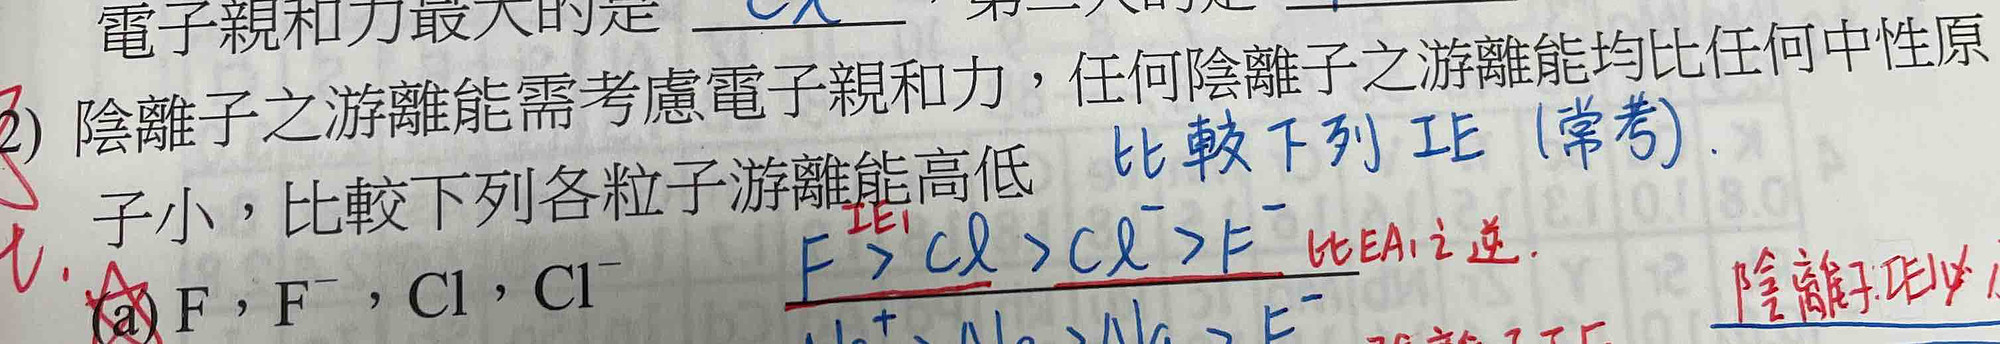 電子親和力最大的是 Cl ，第二大的是 F
(2) 陰離子之游離能需考慮電子親和力，任何陰離子之游離能均比任何中性原
子小，比較下列各粒子游離能高低
比較下列 IE (常考).
(a) F，F⁻，Cl，Cl⁻
IE₁
F > Cl > Cl⁻ > F⁻
比EA₁之逆.
陰離子IE
> Na > F⁻